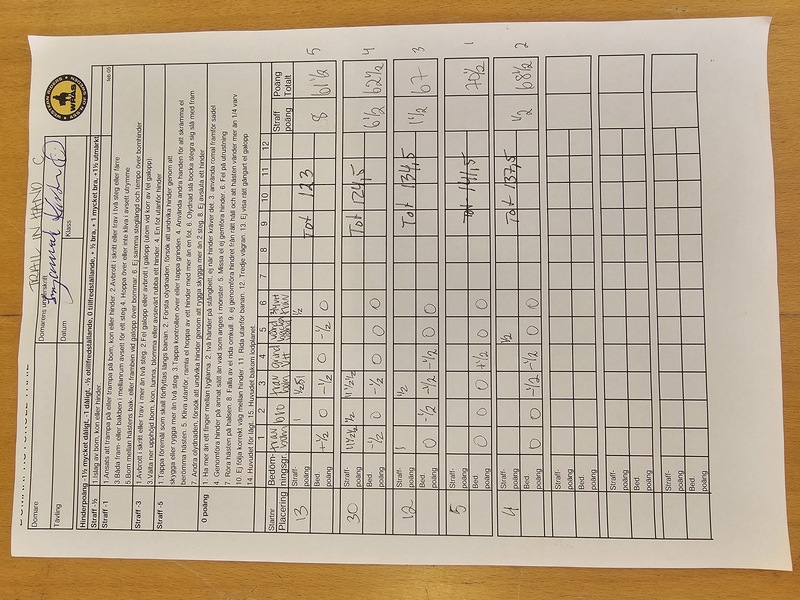 TRAIL IN HAND C
Domare
Domarens underskrift
WRAS
Tävling
Datum
Klass
feb-05
Hinderpoäng -1½ mycket dåligt, -1 dåligt, -½ otillfredställande, 0 tillfredställande, + ½ bra, + 1 mycket bra, +1½ utmärkt
Straff -½
1. Islag av bom, kon eller hinder.
Straff -1
1.Ansats att trampa på eller trampa på bom, kon eller hinder. 2.Avbrott i skritt eller trav i två steg eller färre
3.Båda fram- eller bakben i mellanrum avsett för ett steg 4. Hoppa över eller inte kliva i avsett utrymme
5.Bom mellan hästens bak- eller framben vid galopp över bommar. 6. Ej samma steglängd och tempo över bomhinder
Straff -3
1.Avbrott i skritt eller trav i mer än två steg. 2.Fel galopp eller avbrott i galopp (utom vid korr av fel galopp).
3.Välta ner upphöjd bom, kon, tunna, blomma eller avsevärt rubba ett hinder. 4. En fot utanför hinder
Straff -5
1.Tappa föremål som skall förflyttas längs banan. 2. Första olydnaden, försök att undvika hinder genom att
skygga eller rygga mer än två steg. 3.Tappa kontrollen över eller tappa grinden. 4. Använda andra handen för att skrämma el
berömma hästen. 5. Kliva utanför, ramla el hoppa av ett hinder med mer än en fot. 6. Olydnad slå bocka stegra sig slå med fram
7. Andra olydnaden, försök att undvika hinder genom att rygga skygga mer än 2 steg. 8. Ej avsluta ett hinder
0 poäng
1. Ha mer än ett finger mellan tyglarna 2. två händer på stångbett, ej när hinder kräver det. 3. använda romal framför sadel
4. Genomföra hinder på annat sätt än vad som anges i mönster. 5. Missa el ej genomföra hinder. 6. Fel på utrustning
7. Röra hästen på halsen. 8. Falla av el rida omkull. 9. ej genomföra hindret från rätt håll och att hästen vänder mer än 1/4 varv
10. Ej följa korrekt väg mellan hinder. 11. Rida utanför banan. 12. Tredje vägran. 13. Ej visa rätt gångart el galopp
14. Huvudet för lågt. 15. Huvudet bakom lodplanet
Startnr Bedöm- 1 2 3 4 5 6 7 8 9 10 11 12 Straff Poäng
Placering ningsgr. trav bro trav grind poäng Totalt
13 Straff- poäng 1 Tot 123 8 61½ 5
Bed. poäng +½ 0 -½ 0 -½ 0
30 Straff- poäng Tot 124,5 6½ 62½ 4
Bed. poäng -½ 0 -½ 0 0 0
12 Straff- poäng 1 ½ Tot 134,5 1½ 67 3
Bed. poäng 0 -½ -½ -½ 0 0
5 Straff- poäng Tot 141,5 70½ 1
Bed. poäng 0 0 0 +½ 0 0
4 Straff- poäng ½ Tot 137,5 ½ 68½ 2
Bed. poäng 0 0 -½ -½ 0 0
Straff- poäng
Bed. poäng
Straff- poäng
Bed. poäng
Straff- poäng
Bed. poäng